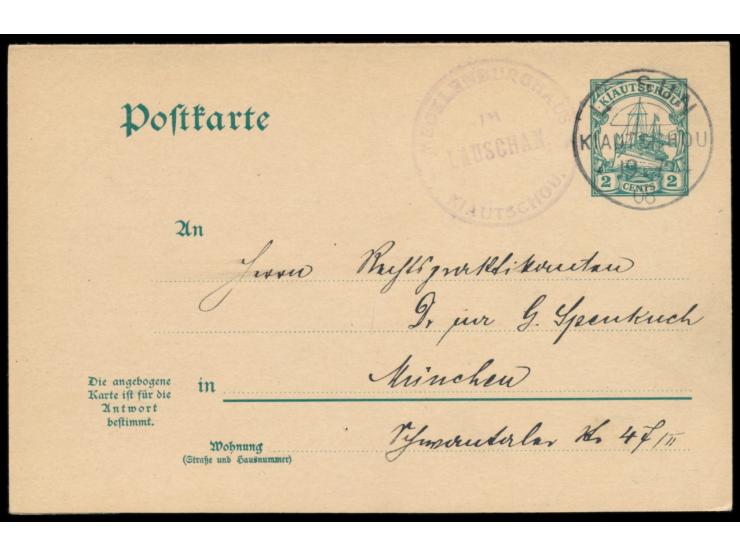 Postkarte
MECKLENBURGHAUS
IM
LAUSCHAN.
KIAUTSCHOU.
KIAUTSCHOU
2 CENTS 2
KIAUTSCHOU
06
An
Herrn Rechtspraktikanten
Dr jur G. Spenkuch
Die angebogene
Karte ist für die
Antwort
bestimmt.
in München
Wohnung
(Straße und Hausnummer)
Schwantaler Str 47/II